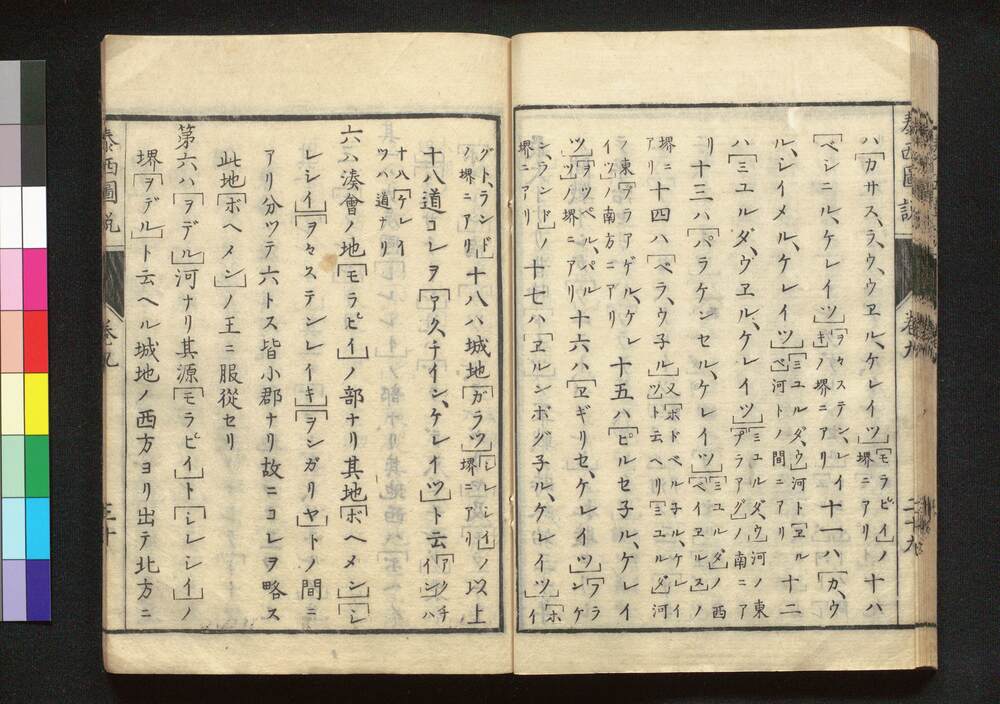 泰西圖説
卷九
二十九
ハ「カサス、ラ、ウ、ウヱル、ケレイツ」「モラビイ」ノ堺ニアリ十ハ
「ベシニル、ケレイツ」「ヲヽステン、レイキ」ノ堺ニアリ十一ハ「カ、ウ
ル、シイメル、ケレイツ」「ミユルダ、ウ」河ト「ヱルベ」河トノ間ニアリ十二
ハ「ミユルダ、ヴヱル、ケレイツ」「ミユルダ、ウ」河ノ東「プラアグ」ノ南ニア
リ十三ハ「パラケンセル、ケレイツ」「ミユルダ」ノ西「ベイヱルス」ノ
堺ニアリ十四ハ「ベラ、ウ子ル」又「ボドベル子ル、ケレイツ」ト云ヘリ「ミユルダ」河
ノ東「プラアゲル、ケレイツ」ノ南方ニアリ十五ハ「ピルセ子ル、ケレイ
ツ」「ヲツペル、パルツ」ノ堺ニアリ十六ハ「ヱギリセ、ケレイツ」「フランケ
ン、ランド」ノ堺ニアリ十七ハ「ヱルンボグ子ル、ケレイツ」「ホイ
グト、ランド」ノ堺ニアリ十八ハ城地「ガラツ」「シレシイ」ノ堺ニアリ以上
十八道コレヲ「アク、チイン、ケレイツ」ト云「アクチイン」ハ
十八「ケレイツ」ハ道ナリ
六ハ湊會ノ地「モラビイ」ノ部ナリ其地「ボヘメン」「シ
レシイ」「ヲヽステンレイキ」「ヲンガリヤ」トノ間ニ
アリ分ツテ六トス皆小郡ナリ故ニコレヲ略ス
此地「ボヘメン」ノ王ニ服從セリ
第六ハ「ヲデル」河ナリ其源「モラビイ」ト「シレシイ」ノ
堺「ヲデル」ト云ヘル城地ノ西方ヨリ出テ北方ニ
泰西圖説
卷九
三十